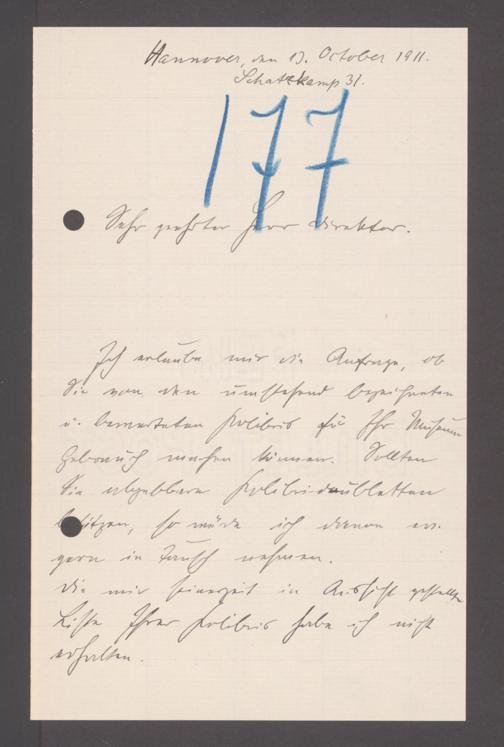 Hannover, den 13. October 1911.
Schatzkamp 31.
177
Sehr geehrter Herr Direktor.
Ich erlaube mir die Anfrage, ob
Sie von den umstehend bezeichneten
u. bewerteten Kolibris für Ihr Museum
Gebrauch machen können. Sollten
Sie abgebbare Kolibridoubletten
besitzen, so würde ich davon ev.
gern in Tausch nehmen.
Die mir seinerzeit in Aussicht gestellte
Liste Ihrer Kolibris habe ich nicht
erhalten.